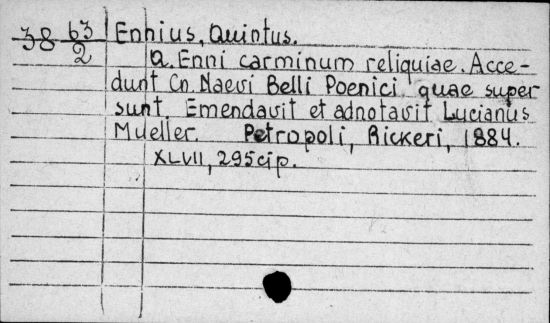 38 63/2 Ennius, Quintus.
Q. Enni carminum reliquiae. Acce-
dunt Cn. Naevi Belli Poenici quae super
sunt. Emendavit et adnotavit Lucianus
Mueller. Petropoli, Rickeri, 1884.
XLVII, 295 с; р.